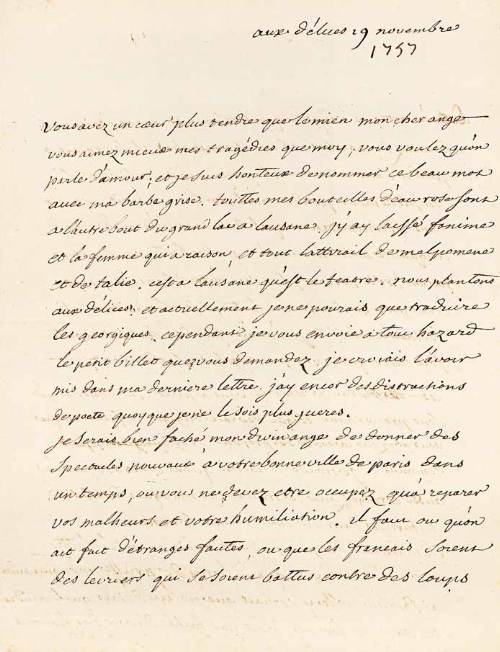 aux délices 19 novembre
1757
Vous avez un cœur plus tendre que le mien mon cher ange
vous aimez mieux mes tragédies que moy, vous voulez qu'on
parle d'amour, et je suis honteux de nommer ce beau mot
avec ma barbe grise. touttes mes bouteilles d'eau rose sont
à l'autre bout du grand lac à lausane. j'y ay laissé fanime
et la femme qui a raison, et tout l'attirail de melpomene
et de talie. c'est a lausane qu'est le teatre. nous plantons
aux délices, et actuellement je ne pourais que traduire
les georgiques. cependant je vous envoie à tout hazard
le petit billet que vous demandez. je croiais l'avoir
mis dans ma derniere lettre. j'ay encor des distractions
de poete quoyque je ne le sois plus gueres.
je serais bien faché mon divin ange de donner des
spectacles nouvaux à votre bonne ville de paris dans
un temps, ou vous ne devez etre occupez qu'à reparer
vos malheurs et votre humiliation. il faut ou qu'on
ait fait d'étranges fautes, ou que les francais soient
des levriers qui se soient battus contre des loups